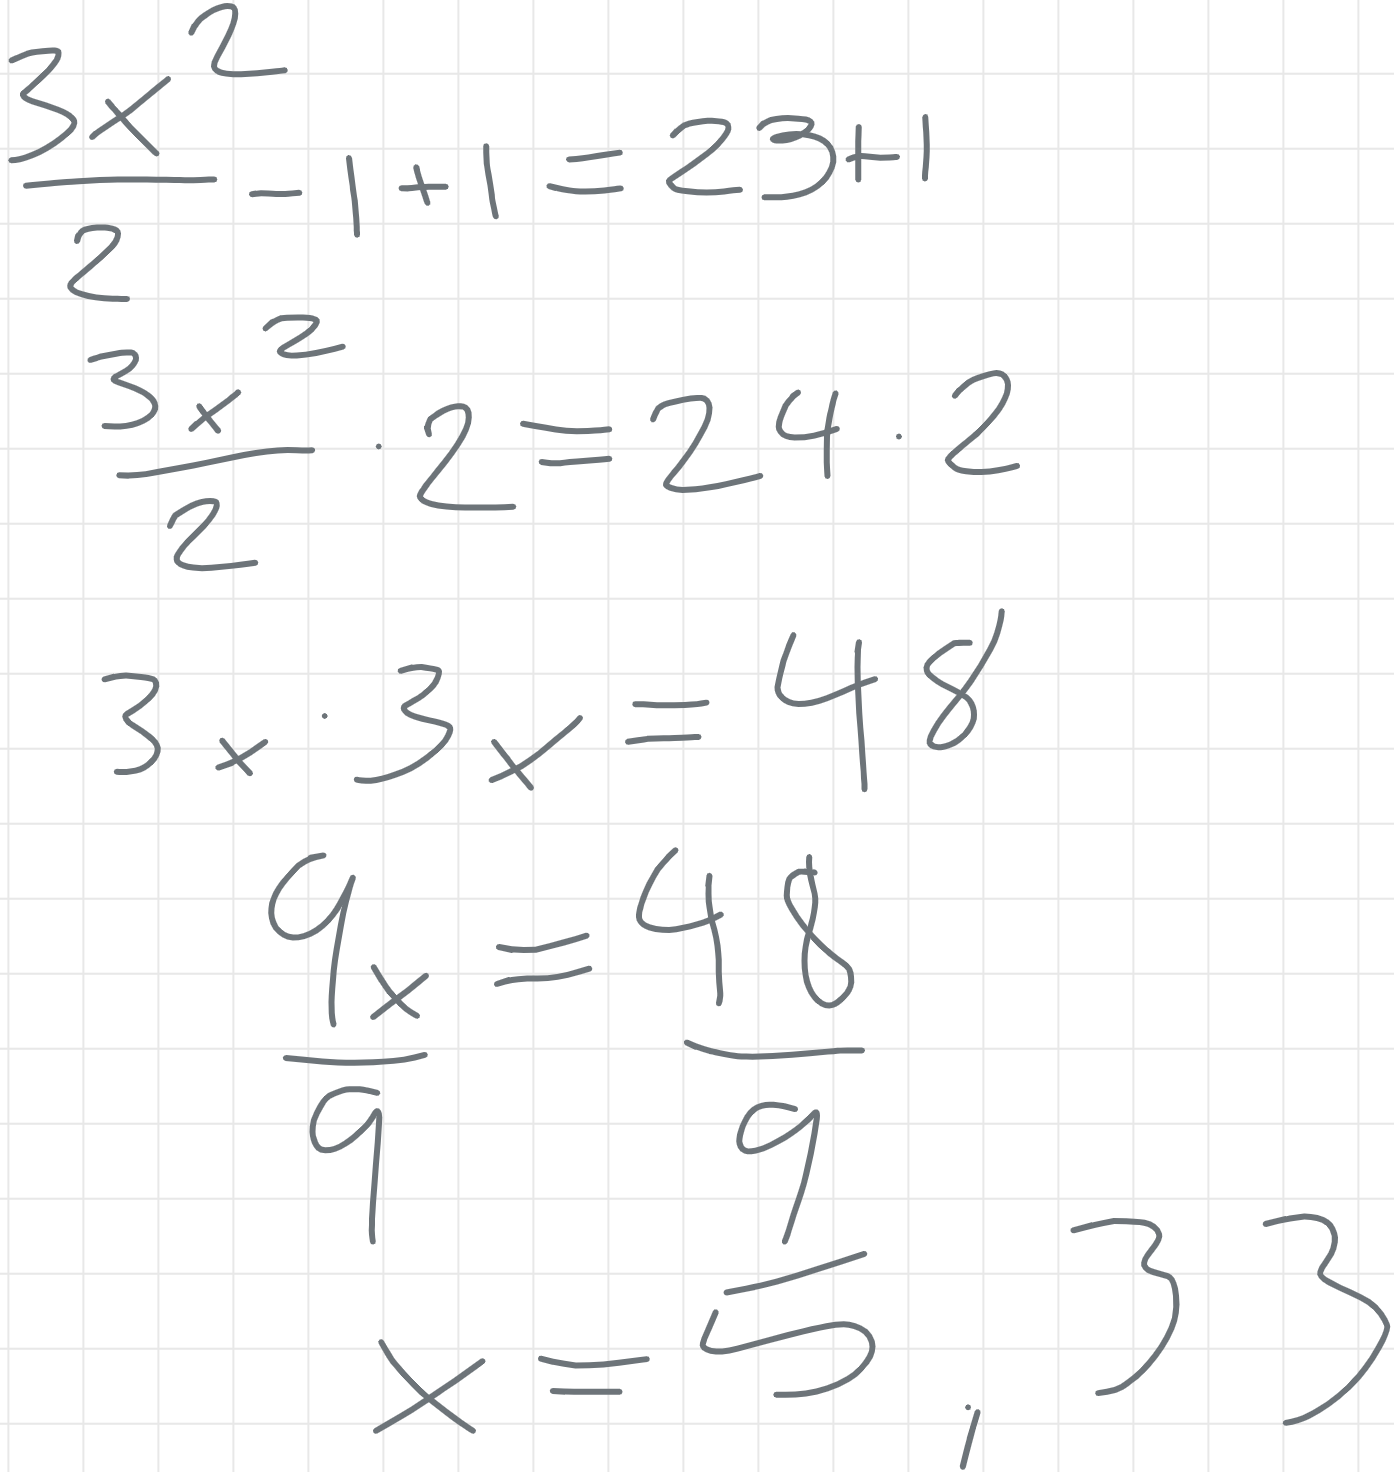 3x²/2 - 1 + 1 = 23 + 1
3x²/2 · 2 = 24 · 2
3x · 3x = 48
9x/9 = 48/9
x = 5,33